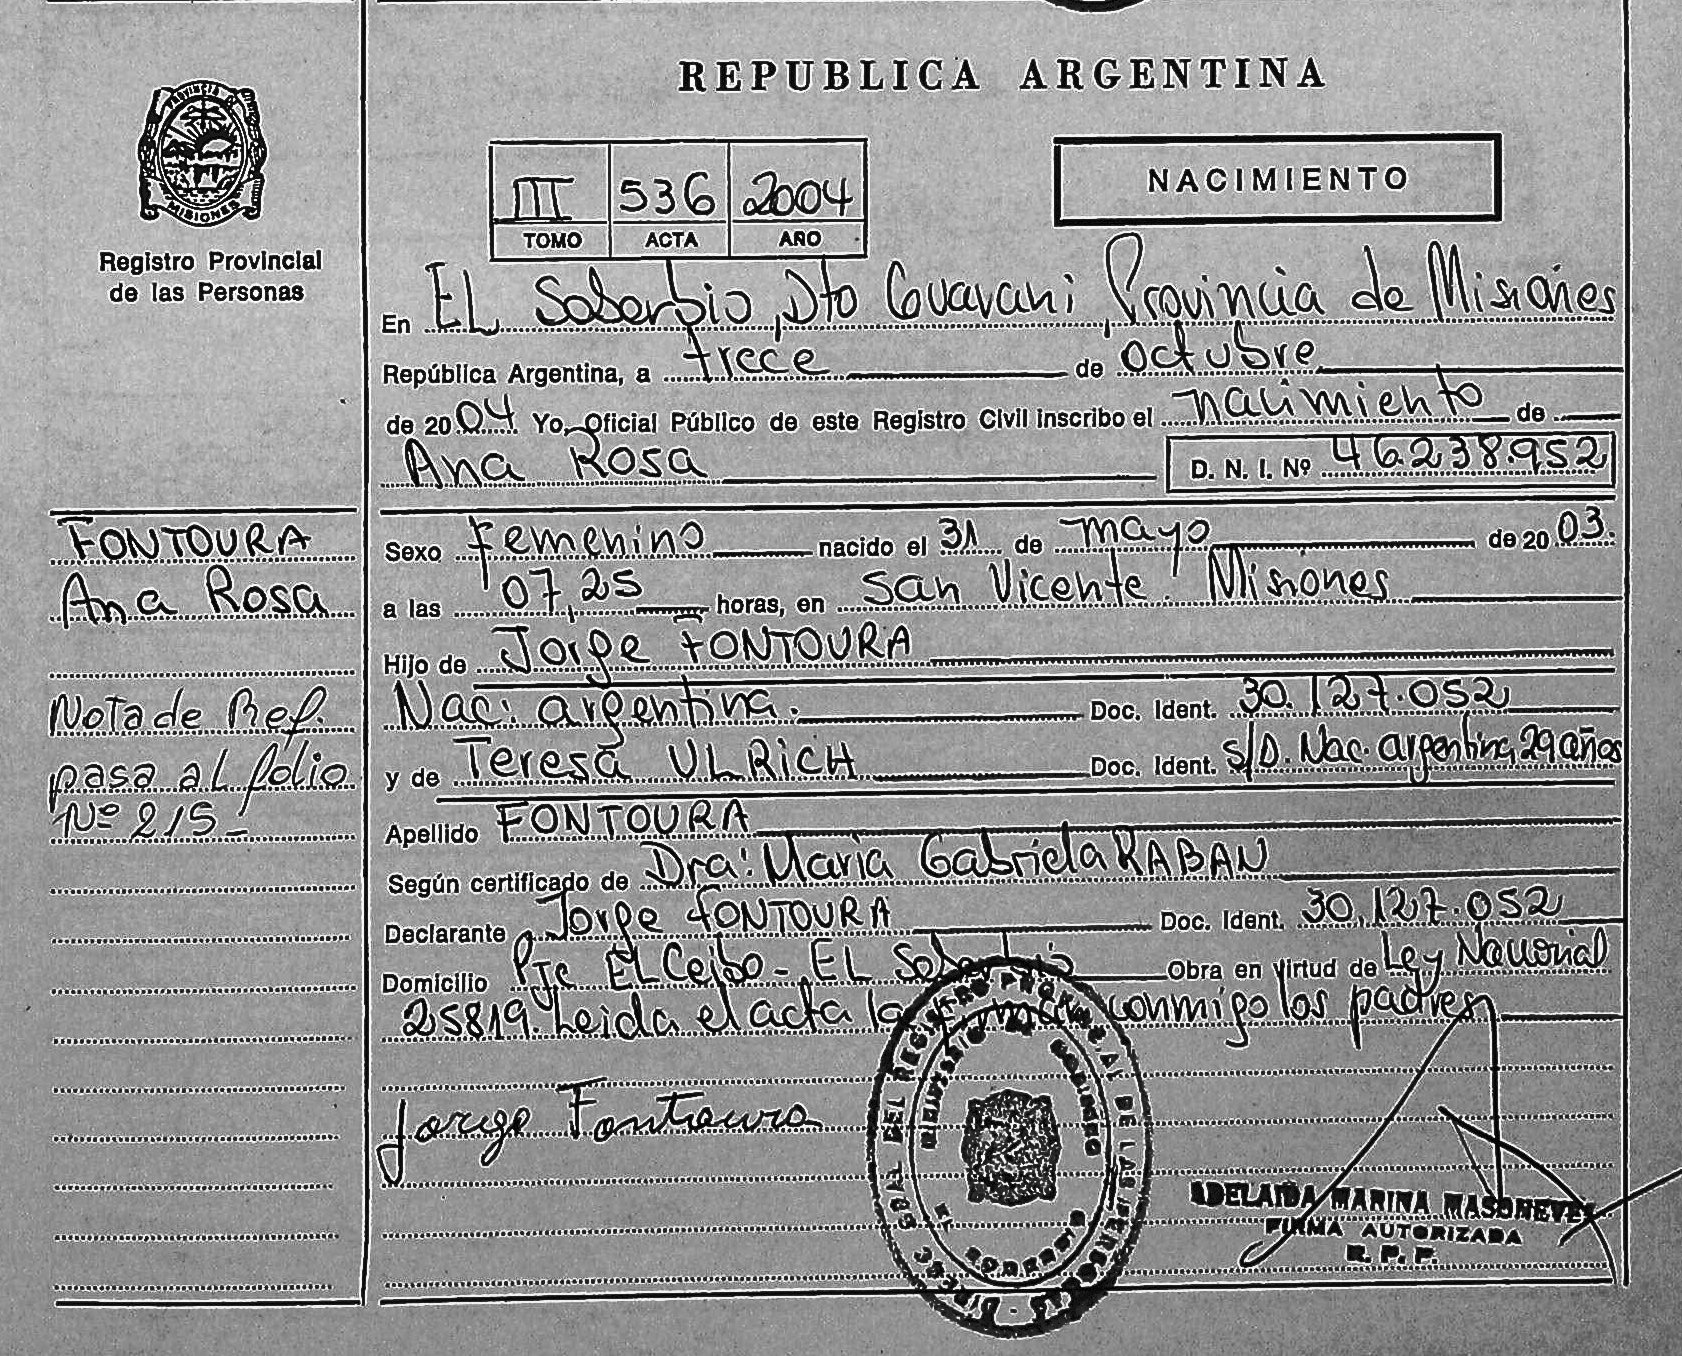 REPUBLICA ARGENTINA
PROVINCIA DE
MISIONES
Registro Provincial
de las Personas
NACIMIENTO
III 536 2004
TOMO ACTA AÑO
En EL Soberbio, Dto Guarani, Provincia de Misiones
República Argentina, a trece de octubre
de 2004 Yo, Oficial Público de este Registro Civil inscribo el nacimiento de
Ana Rosa D. N. I. Nº 46.238.952
FONTOURA
Ana Rosa
Nota de Ref.
pasa al folio
Nº 215-
Sexo femenino nacido el 31 de mayo de 2003.
a las 07,25 horas, en San Vicente. Misiones
Hijo de Jorge FONTOURA
Nac: argentina. Doc. Ident. 30.127.052
y de Teresa ULRICH Doc. Ident. s/D. Nac. argentina, 29 años
Apellido FONTOURA
Según certificado de Dra: Maria Gabriela RABAN
Declarante Jorge FONTOURA Doc. Ident. 30.127.052
Domicilio Pje El Ceibo - EL Soberbio Obra en virtud de Ley Nacional
25819. Leida el acta la firman conmigo los padres
Jorge Fontoura
DEL REGISTRO PROVINCIAL DE LAS PERSONAS
MINISTERIO DE GOBIERNO
EL SOBERBIO
MISIONES
ADELAIDA MARINA MASONEVES
FIRMA AUTORIZADA
R. P. P.